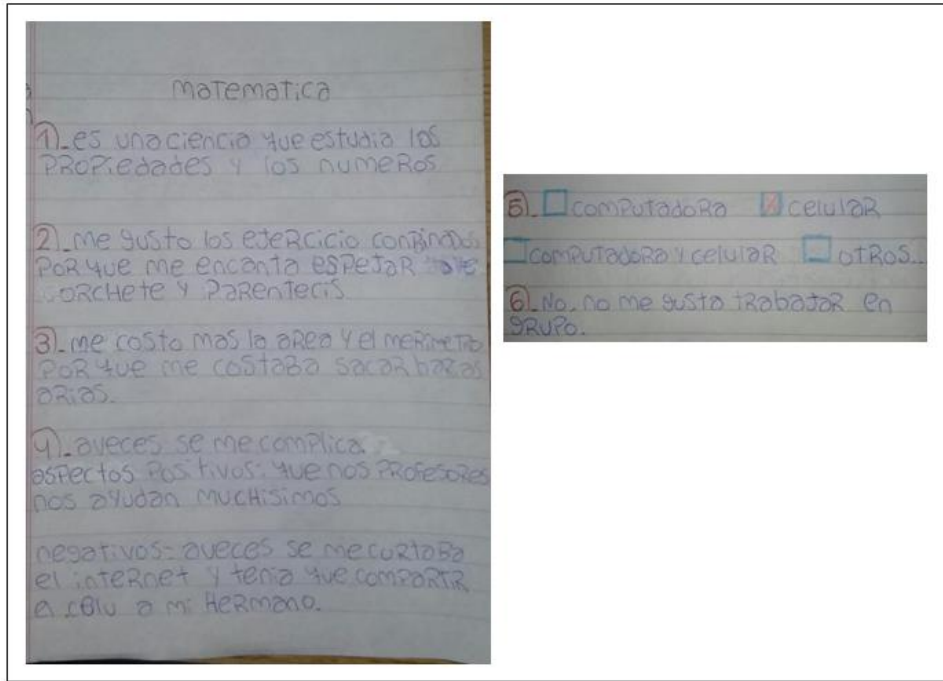 matematica
1)_es una ciencia que estudia los
PROPiedades y los numeros
2)_me gusto los ejercicio conbinados
PoR que me encanta espejar
corchete y parentecis
3)_me costo mas la area y el merimetro
PoR que me costaba sacar
arias.
4)_aveces se me complica.
aspectos positivos: que nos profesores
nos ayudan muchisimos
negativos: aveces se me cortaba
el internet y tenia que compartir
el celu a mi hermano.
5)_ computadora celular
computadora y celular otros...
6)_No, no me gusta trabajar en
grupo.